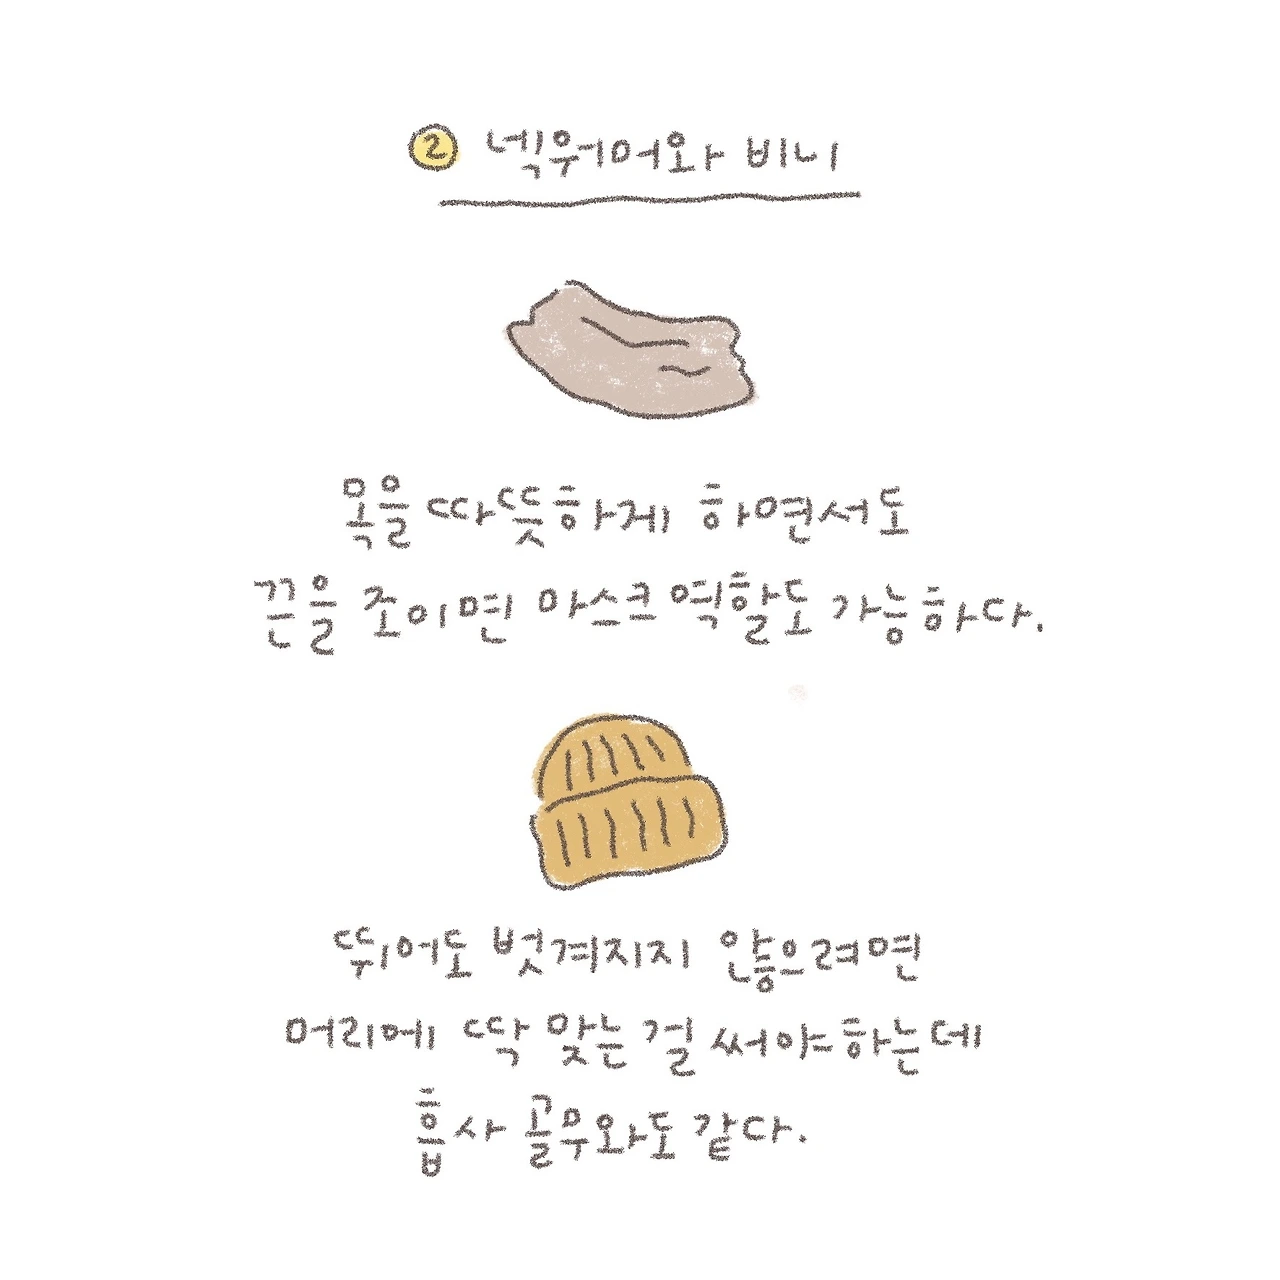 ② 넥워머와 비니
목을 따뜻하게 하면서도
끈을 조이면 마스크 역할도 가능하다.
뛰어도 벗겨지지 않으려면
머리에 딱 맞는 걸 써야하는데
흡사 골무와도 같다.